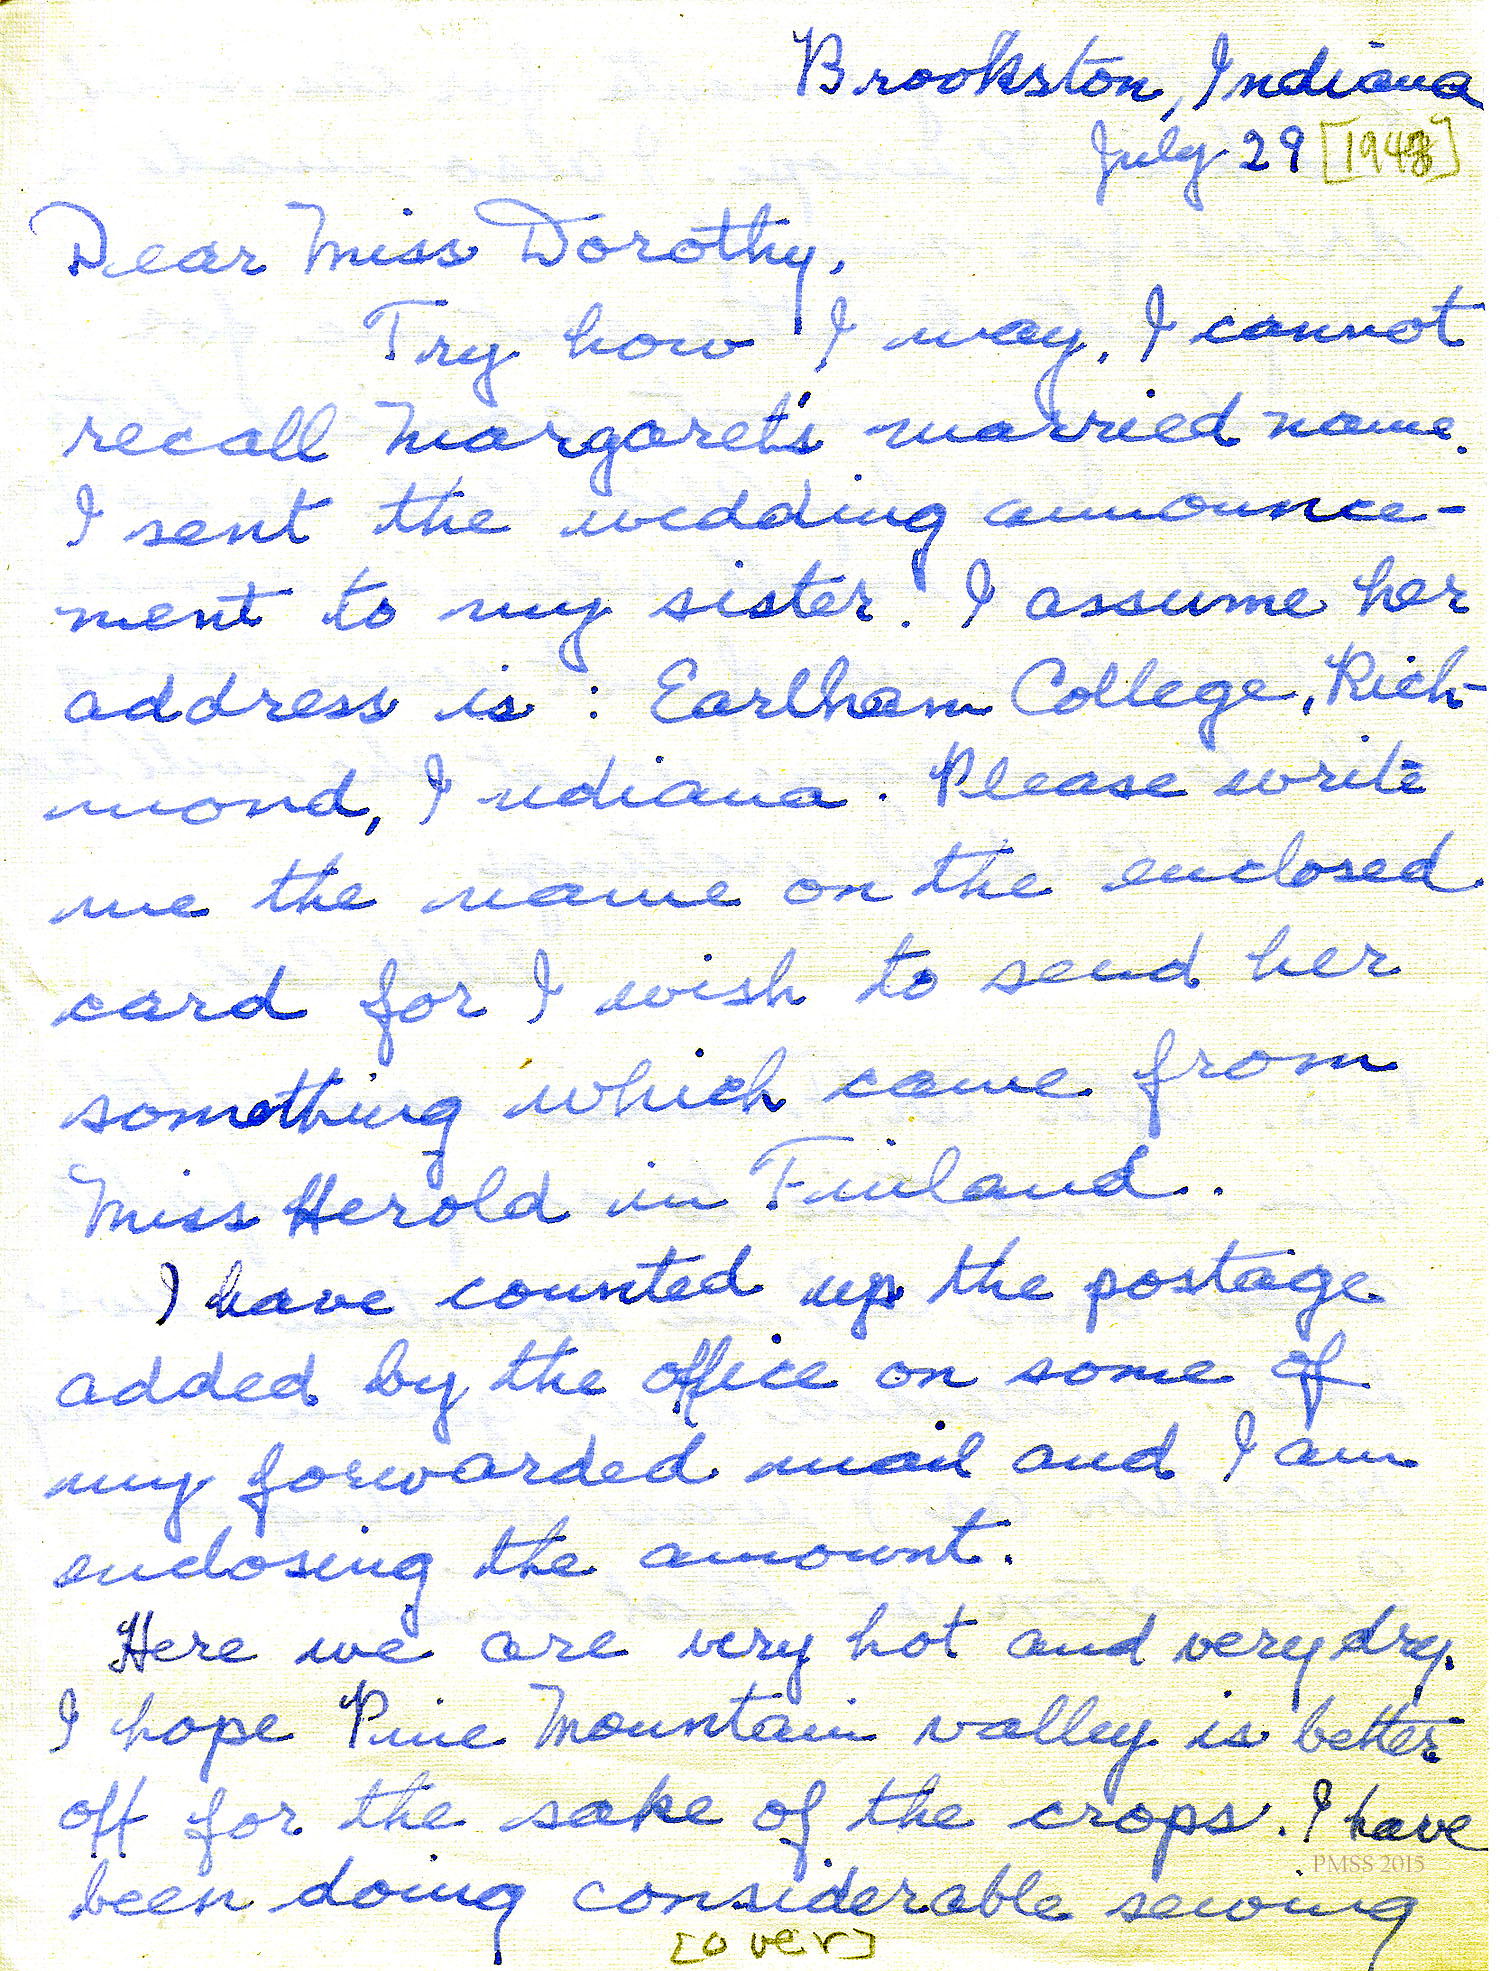 Brookston, Indiana
July 29 [1948]
Dear Miss Dorothy,
Try how I may, I cannot
recall Margaret's married name.
I sent the wedding announce-
ment to my sister. I assume her
address is : Earlham College, Rich-
mond, Indiana. Please write
me the name on the enclosed
card for I wish to send her
something which came from
Miss Herold in Finland.
I have counted up the postage
added by the office on some of
my forwarded mail and I am
enclosing the amount.
Here we are very hot and very dry.
I hope Pine Mountain valley is better
off for the sake of the crops. I have
PMSS 2015
been doing considerable sewing
[over]